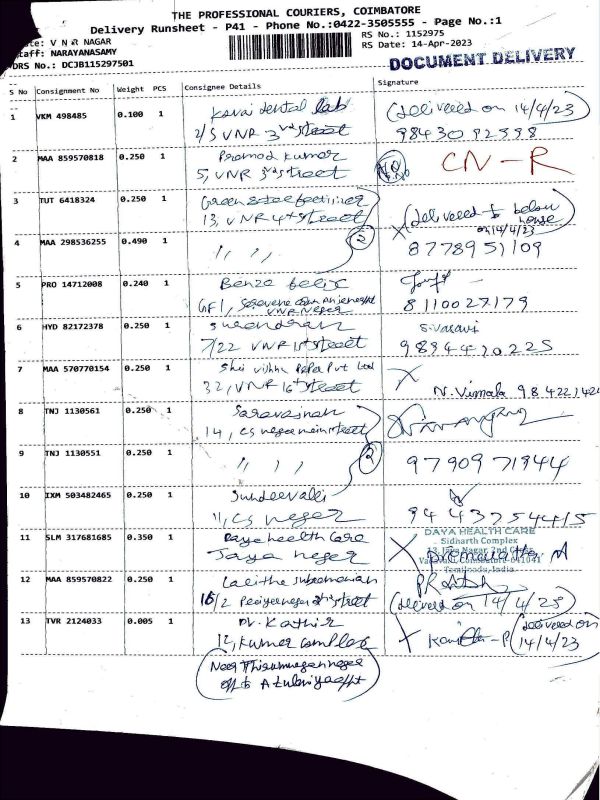 THE PROFESSIONAL COURIERS, COIMBATORE
Delivery Runsheet - P41 - Phone No.:0422-3505555 - Page No.:1
V N R NAGAR
RS No.: 1152975
NARAYANASAMY
RS Date: 14-Apr-2023
DRS No.: DCJB115297501
DOCUMENT DELIVERY
S No Consignment No Weight PCS Consignee Details Signature
1 VKM 498485 0.100 1 Kavai dental lab (delivered on 14/4/23
2/5 VNR 3rd street 98430 92998
2 MAA 859570818 0.250 1 Pramod Kumar CN-R
5, VNR 3rd street
3 TUT 6418324 0.250 1 Green
13, VNR 4th street (delivered to below house on 14/4/23)
4 MAA 298536255 0.490 1 " " 2 8778951109
5 PRO 14712008 0.240 1 Benze felix
GF1, VNR Neger 8110027179
6 HYD 82172378 0.250 1 Surendran S.Vasavi
7/22 VNR 1st street 9894470225
7 MAA 570770154 0.250 1 Sri Vishnu Papa Pvt Ltd
32, VNR 16th street N. Vimala
8 TNJ 1130561 0.250 1 Saravanan
14, CS neger main street
9 TNJ 1130551 0.250 1 " " 2 9790971944
10 IXM 503482465 0.250 1 Sundeevalli
11, CS neger 9443754415
11 SLM 317681685 0.350 1 Daya health Care DAYA HEALTH CARE
Sidharth Complex
Jaya neger 13, Jaya Nagar, 2nd Cross,
Vadavalli, Coimbatore-641041
Tamilnadu, India
12 MAA 859570822 0.250 1 Lalitha Subramanian
16/2 Periyaneger 2nd street (delivered on 14/4/23)
13 TVR 2124033 0.005 1 Dr. Kathir (delivered on
12, Kumar complex 14/4/23
Near Thirumurugan neger
opp to